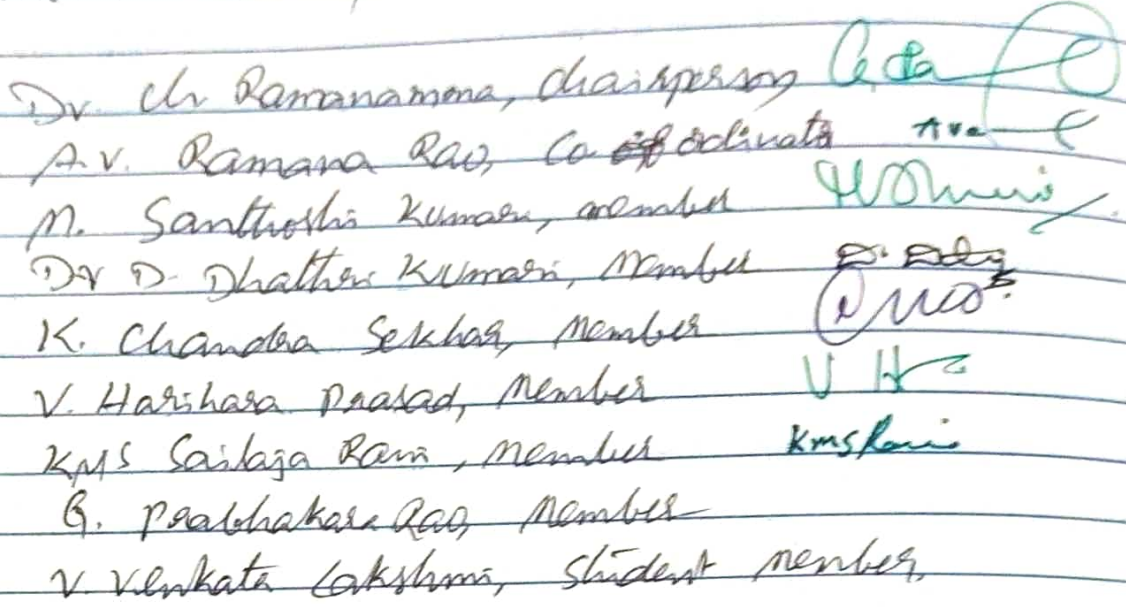 Dr. Ch Ramanamma, Chairperson
A.V. Ramana Rao, Co ordinator Ava
M. Santhoshi Kumari, member
Dr D. Dhathri Kumari, Member
K. Chandra Sekhar, Member
V. Harihara Prasad, Member V H
KMS Sailaja Rani, Member KMSRani
G. Prabhakara Rao, Member
V. Venkata Lakshmi, Student member,